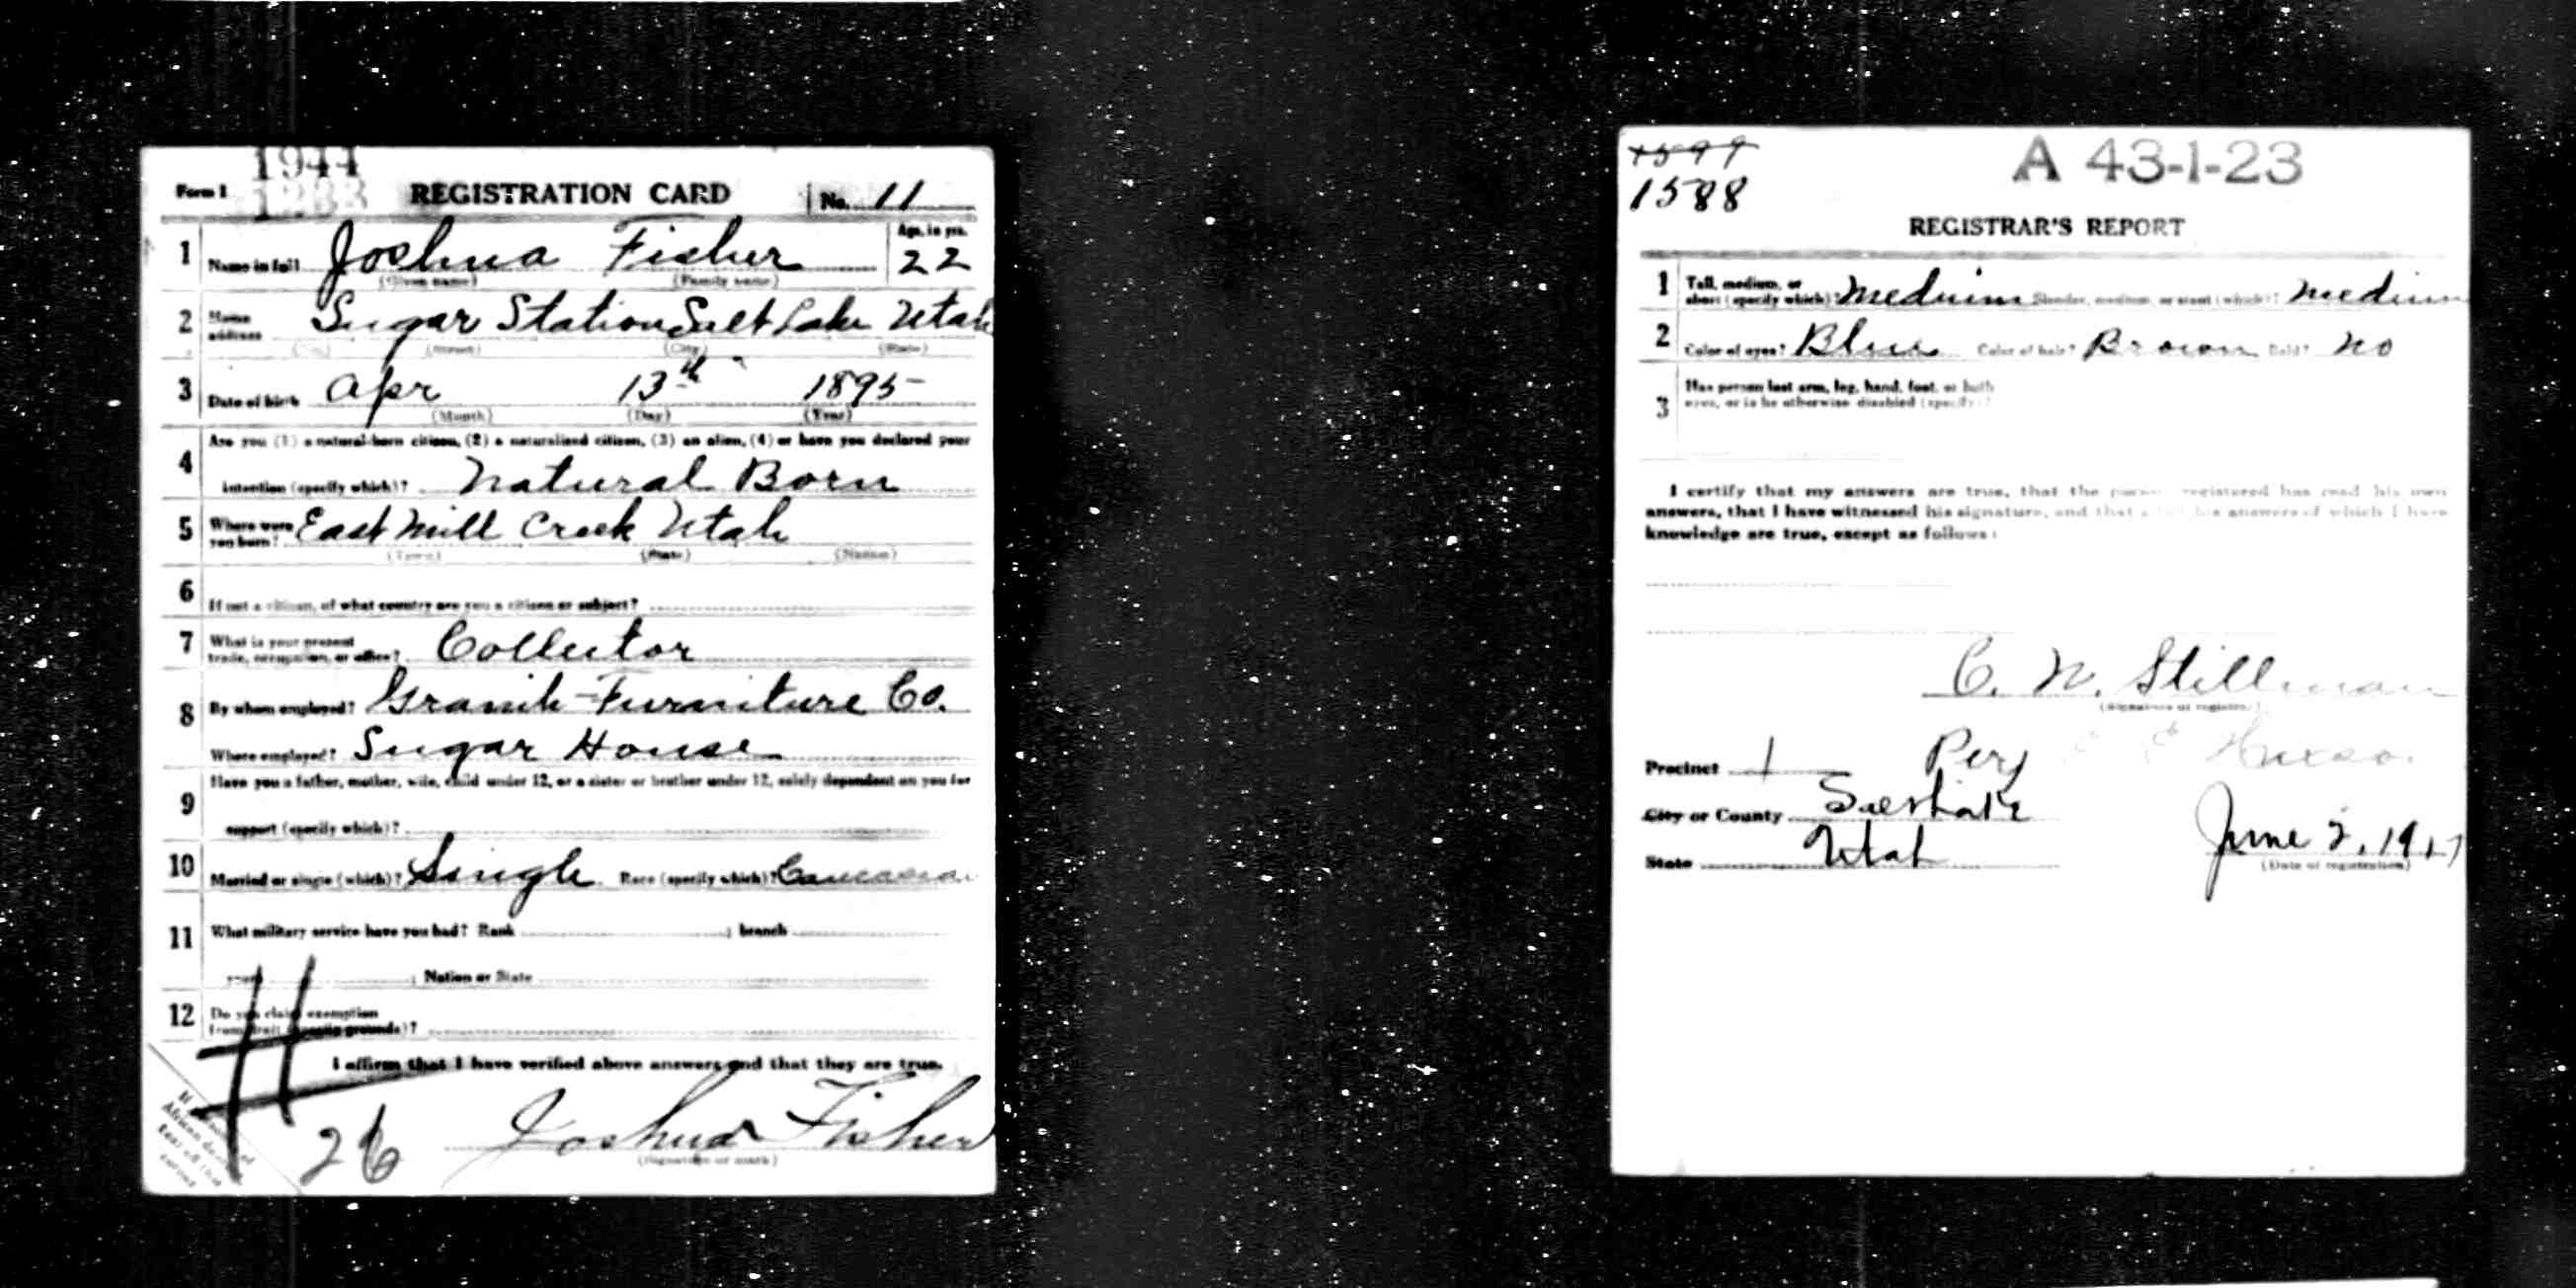 1944
Form 1 REGISTRATION CARD No. 11
1 Name in full Joshua Fisher Age, in yrs. 22
(Given name) (Family name)
2 Home address Sugar Station Salt Lake Utah
(No.) (Street) (City) (State)
3 Date of birth Apr 13th 1895
(Month) (Day) (Year)
4 Are you (1) a natural-born citizen, (2) a naturalized citizen, (3) an alien, (4) or have you declared your
intention (specify which)? Natural Born
5 Where were you born? East Mill Creek Utah
(Town) (State) (Nation)
6 If not a citizen, of what country are you a citizen or subject?
7 What is your present
trade, occupation, or office? Collector
8 By whom employed? Granite Furniture Co.
Where employed? Sugar House
9 Have you a father, mother, wife, child under 12, or a sister or brother under 12, solely dependent on you for
support (specify which)?
10 Married or single (which)? Single Race (specify which)? Caucasian
11 What military service have you had? Rank ; branch
years ; Nation or State
12 Do you claim exemption
from draft (specify grounds)?
I affirm that I have verified above answers and that they are true.
# 26
Joshua Fisher
(Signature or mark)
If
African descent
tear off this
corner
1588
A 43-1-23
REGISTRAR'S REPORT
1 Tall, medium, or
short (specify which)? Medium Slender, medium, or stout (which)? Medium
2 Color of eyes? Blue Color of hair? Brown Bald? No
3 Has person lost arm, leg, hand, foot, or both
eyes, or is he otherwise disabled (specify)?
I certify that my answers are true, that the person registered has read his own
answers, that I have witnessed his signature, and that all of his answers of which I have
knowledge are true, except as follows:
C. N. Stillman
(Signature of registrar)
Per
Precinct 1
City or County Salt Lake
State Utah
June 2, 1917
(Date of registration)